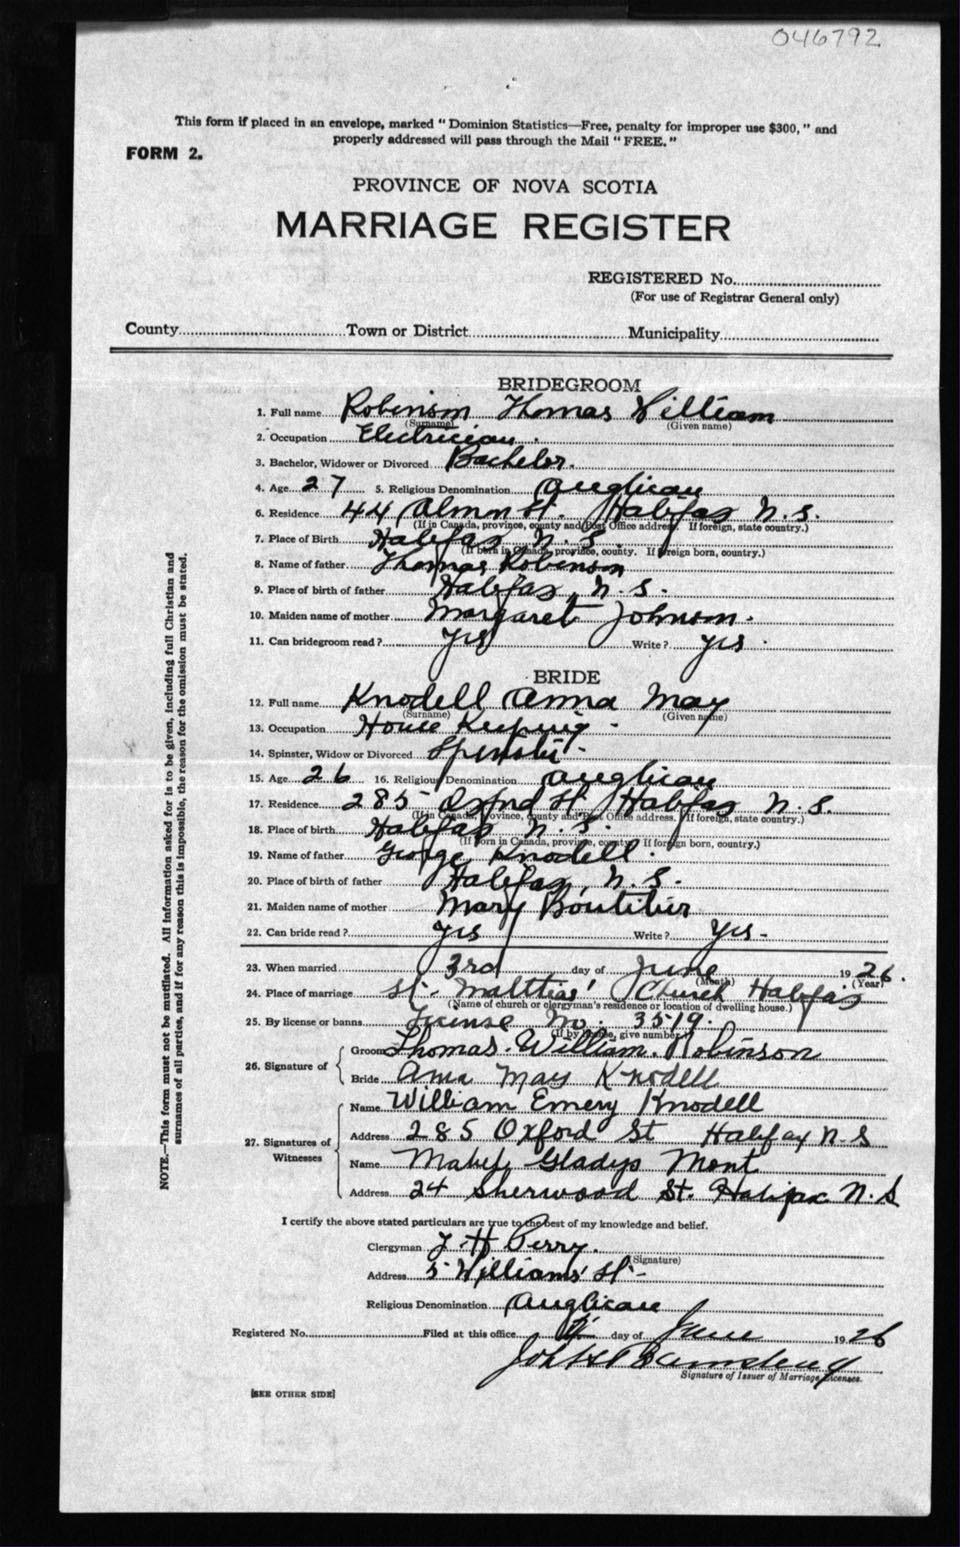 046792
This form if placed in an envelope, marked "Dominion Statistics—Free, penalty for improper use $300," and
properly addressed will pass through the Mail "FREE."
FORM 2.
PROVINCE OF NOVA SCOTIA
MARRIAGE REGISTER
REGISTERED No.
(For use of Registrar General only)
County Town or District Municipality
BRIDEGROOM
1. Full name Robinson Thomas William
(Surname) (Given name)
2. Occupation Electrician.
3. Bachelor, Widower or Divorced Bachelor.
4. Age 27 5. Religious Denomination Anglican
6. Residence 44 Almon St. Halifax N.S.
(If in Canada, province, county and Post Office address. If foreign, state country.)
7. Place of Birth Halifax N.S.
(If born in Canada, province, county. If foreign born, country.)
8. Name of father Thomas Robinson
9. Place of birth of father Halifax, N.S.
10. Maiden name of mother Margaret Johnson.
11. Can bridegroom read? Yes Write? Yes.
BRIDE
12. Full name Knodell Anna May
(Surname) (Given name)
13. Occupation House Keeping -
14. Spinster, Widow or Divorced Spinster -
15. Age 26 16. Religious Denomination Anglican
17. Residence 285 Oxford St Halifax N.S.
(If in Canada, province, county and Post Office address. If foreign, state country.)
18. Place of birth Halifax N.S.
(If born in Canada, province, county. If foreign born, country.)
19. Name of father George Knodell.
20. Place of birth of father Halifax, N.S.
21. Maiden name of mother Mary Boutilier
22. Can bride read? Yes Write? Yes -
23. When married 3rd day of June 1926.
(Month) (Year)
24. Place of marriage St. Matthias' Church Halifax
(Name of church or clergyman's residence or location of dwelling house.)
25. By license or banns License No. 3519.
(If by license, give number)
26. Signature of
Groom Thomas. William. Robinson
Bride Anna May Knodell
27. Signatures of Witnesses
Name William Emery Knodell
Address 285 Oxford St Halifax N S
Name Mabel Gladys Mont
Address 24 Sherwood St. Halifax N.S
I certify the above stated particulars are true to the best of my knowledge and belief.
Clergyman H Perry.
(Signature)
Address 5 Williams' St -
Religious Denomination Anglican
Registered No. Filed at this office day of June 1926
Signature of Issuer of Marriage Licenses.
[SEE OTHER SIDE]
NOTE.—This form must not be mutilated. All information asked for is to be given, including full Christian and
surnames of all parties, and if for any reason this is impossible, the reason for the omission must be stated.